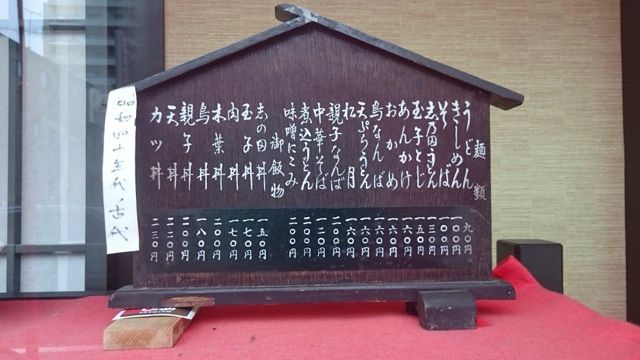 麺類
うどん 九〇円
きしめん 一〇〇円
そば 一〇〇円
志乃田うどん 一三〇円
玉子とじ 一五〇円
あんかけ 一六〇円
おかめ 一六〇円
鳥なんば 一六〇円
天ぷらうどん 一六〇円
松月 一六〇円
親子なんば 二〇〇円
中華そば 一二〇円
煮込うどん 二〇〇円
味噌にこみ 二〇〇円
御飯物
志の田丼 一五〇円
玉子丼 一七〇円
肉丼 一七〇円
木葉丼 二〇〇円
鳥丼 一八〇円
親子丼 二〇〇円
天丼 二二〇円
カツ丼 二三〇円
昭和四十年代、古代